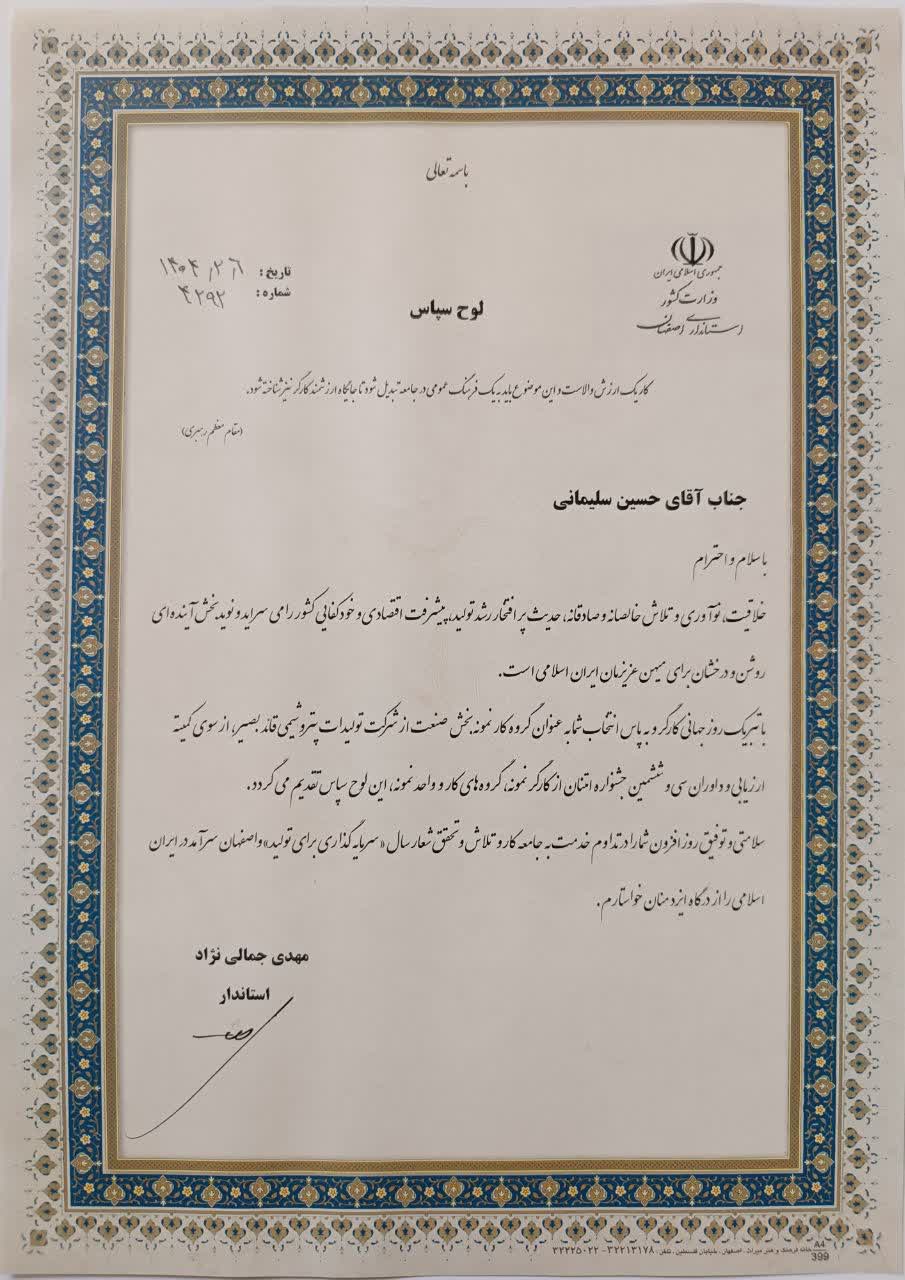 باسمه تعالی
جمهوری اسلامی ایران
وزارت کشور
استانداری اصفهان
تاریخ : ۱۴۰۴/۲/۶
شماره : ۴۲۹۲
لوح سپاس
کار یک ارزش والاست و این موضوع باید به یک فرهنگ عمومی در جامعه تبدیل شود تا جایگاه ارزشمند کارگر نیز شناخته شود.
(مقام معظم رهبری)
جناب آقای حسین سلیمانی
با سلام و احترام
خلاقیت، نوآوری و تلاش خالصانه و صادقانه، حدیث پر افتخار رشد تولید، پیشرفت اقتصادی و خودکفایی کشور را می سراید و نوید بخش آینده ای
روشن و درخشان برای میهن عزیزمان ایران اسلامی است.
با تبریک روز جهانی کارگر و به پاس انتخاب شما به عنوان گروه کار نمونه بخش صنعت از شرکت تولیدات پتروشیمی قائد بصیر، از سوی کمیته
ارزیابی و داوران سی و ششمین جشنواره امتنان از کارگر نمونه، گروه های کار و واحد نمونه، این لوح سپاس تقدیم می گردد.
سلامتی و توفیق روز افزون شما را در تداوم خدمت به جامعه کار و تلاش و تحقق شعار سال «سرمایه گذاری برای تولید» و اصفهان سرآمد در ایران
اسلامی را از درگاه ایزد منان خواستارم.
مهدی جمالی نژاد
استاندار
A4
399
خانه فرهنگ و هنر میراث . اصفهان . خیابان فلسطین . تلفن : ۳۲۲۱۳۱۷۸ - ۳۲۲۲۵۰۲۲